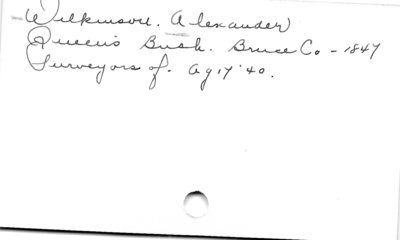 Wilkinson. Alexander
Queen's Bush. Bruce Co. - 1847
Surveyors of. Ag 17 '40.